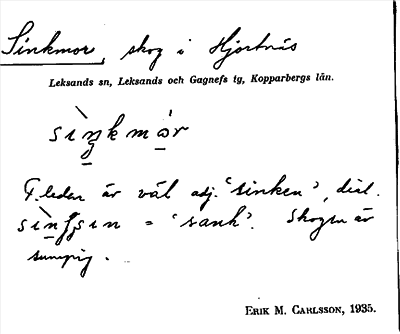 Sinkmor, skog i Hjortnäs
Leksands sn, Leksands och Gagnefs tg, Kopparbergs län.
F.leden är väl adj. 'sinken', dial.
= 'sank'. Skogen är
sumpig.
ERIK M. CARLSSON, 1935.